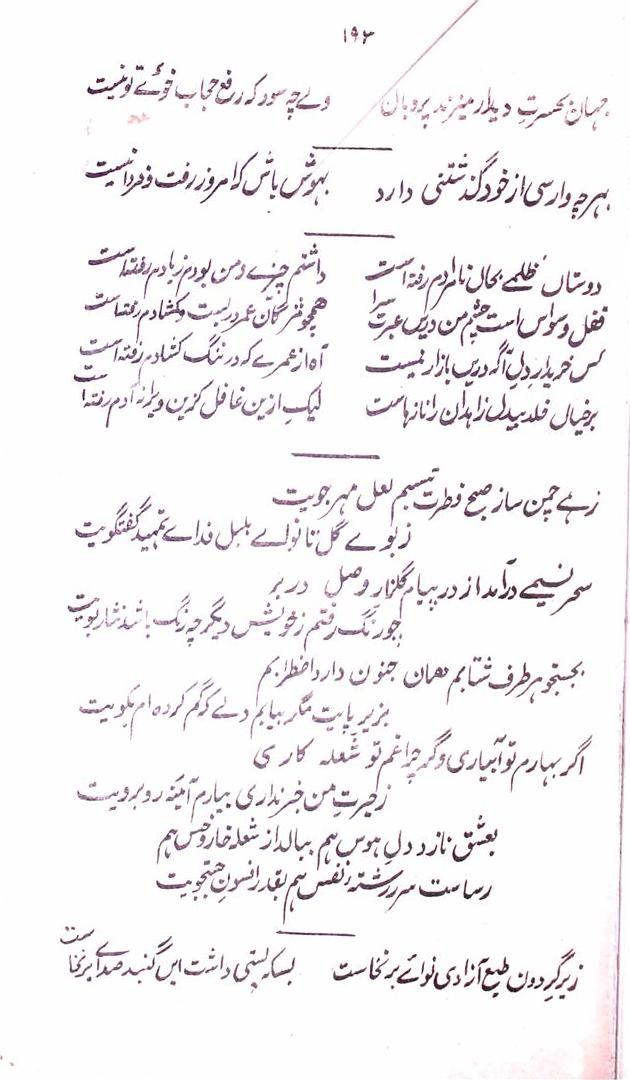 ۱۹۳
جہان بحسرتِ دیدار میزند پر و بال ولے چہ سود کہ رفع حجاب خوئے تو نیست
بہر چہ وارسی از خود گذشتنی دارد بہوش باش کہ امروز رفت و فردا نیست
دوستاں ظلمے بحال نامرادم رفتہ است داشتم چیزے و من بودم زیادم رفتہ است
قفل وسواس است چشم من دریں عبرت سرا ہمچو مژگاں عمر در بست و کشادم رفتہ است
کس خریدار دلِ آگہ دریں بازار نیست آہ از عمرے کہ در ننگ کشادم رفتہ است
برخیال خلد بیدل زاہدان را نازہاست لیک ازین غافل کزین ویرانہ آدم رفتہ است
زہے چمن ساز صبح فطرت تبسم لعل مہر جویت
ز بوے گل تا نواے بلبل فداے تمہید گفتگویت
سحر نسیمے درآمد از در پیام گلزار وصل در بر
چو رنگ رفتم ز خویش دیگر چہ رنگ باشد نثار بویت
بجستجو ہر طرف شتابم ہمان جنون دارد اضطرابم
بزیر پایت مگر بیابم دلے کہ گم کردہ ام بکویت
اگر بہارم تو آبیاری و گر چراغم تو شعلہ کاری
ز حیرتِ من خبر نداری بیارم آئینہ روبرویت
بعشق نازد دلِ ہوس ہم ببالد از شعلہ خار و خس ہم
رساست سر رشتہ نفس ہم بقدر افسون جستجویت
زیر گردون طبع آزادی نوائے برنخاست بسکہ پستی داشت ایں گنبد صدائے برنخاست